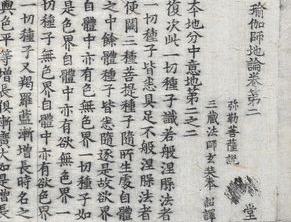 瑜伽師地論卷第二
彌勒菩薩說
三藏法師玄奘奉 詔譯
本地分中意地第二之二
復次此一切種子識若般涅槃法者
一切種子皆悉具足不般涅槃法者
便闕三種菩提種子隨所生處自體
之中餘體種子皆悉隨逐是故欲界
自體中亦有色無色界一切種子如
是色界自體中亦有欲無色界一
切種子無色界自體中亦有欲色界
一切種子又羯羅藍漸增長時名之
與色平等增長俱漸廣大如是增長
堂